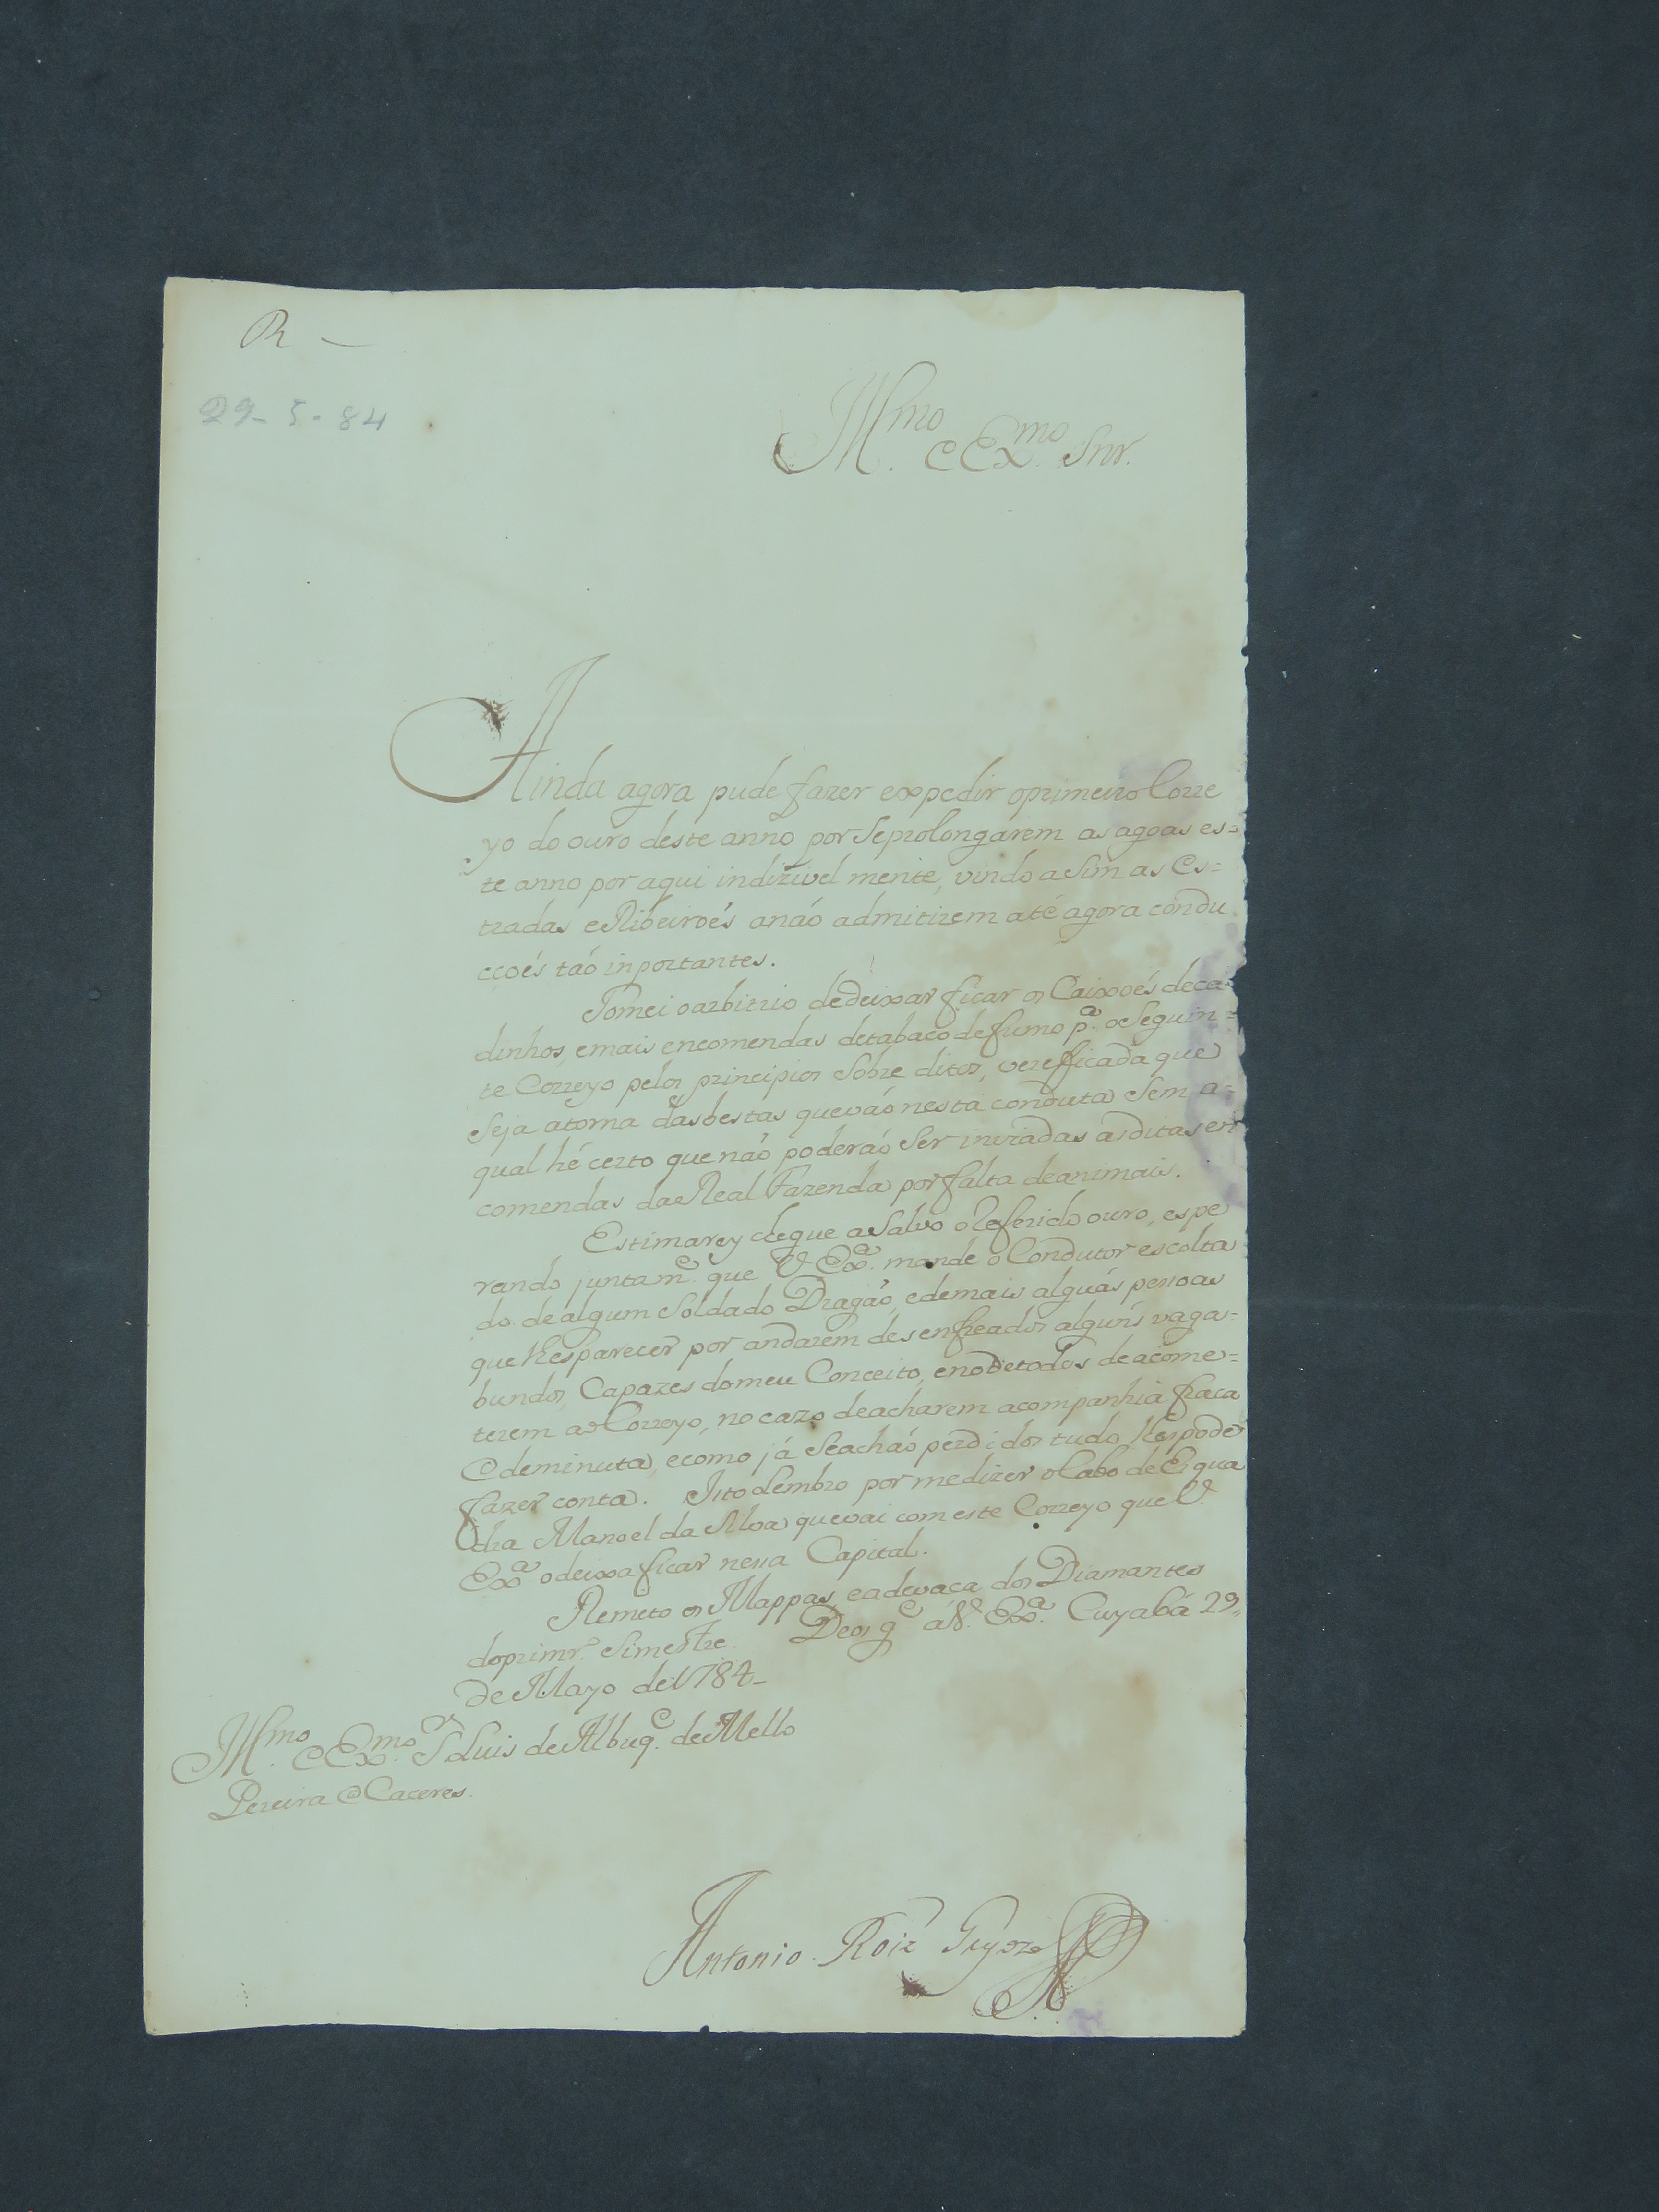 R —
29-5-84
Illmo. e Exmo. Snr.
Ainda agora pude fazer expedir oprimeiro Corre
yo do ouro deste anno por Seprolongarem as agoas es=
te anno por aqui indizivel mente, vindo asim as Es=
tradas eRibeiroés anáo admitirem até agora condu
ccoés táo inportantes.
Tomei oarbitrio dedeixar ficar os Caixoés deca
dinhos, emais encomendas detabaco defumo pa. oSeguin=
te Correyo pelos principios Sobre ditos, vereficada que
Seja atorna dasbestas queváo nesta conduta Sem a=
qual hé certo que náo poderáó Ser inviadas asditas en
comendas daReal Fazenda por falta deanimais.
Estimarey chegue aSalvo oReferido ouro, espe
rando juntame. que V. Exa. mande o Condutor escolta
do dealgum Soldado Dragáo, edemais alguás pessoas
que lhesparecer por andarem desenfreados alguns vaga=
bundos, Capazes domeu Conceito, enodetodos deacome=
terem aoCorreyo, no cazo deacharem acompanhia fraca
e deminuta, ecomo já Seacháo perdidos tudo lhespode
fazer conta. Isto Lembro por medizer oCabo de Esqua
dra Manoel da Silva quevai com este Correyo que V.
Exa. odeixa ficar nessa Capital.
Remeto os Mappas, eadevaca dos Diamantes
doprimr. Simestre. Deos ge. áV. Exa. Cuyabá 29,,
de Mayo de1784-
Illmo. e Exmo. Sr. Luis de Albuqe. deMello
Pereira e Caceres.
Antonio Roiz